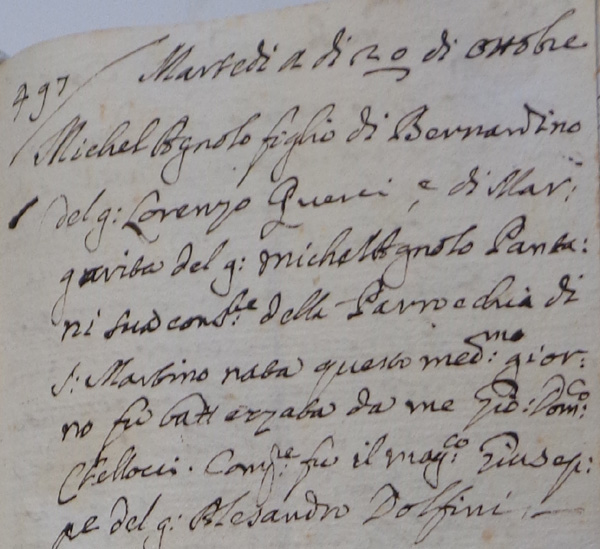 497 Martedi a di 20 di Ottobre
Michel Agnolo figlio di Bernardino
del q: Lorenzo Querci, e di Mar:
garita del q: Michel Agnolo Panta:
ni sua cons:te della Parrocchia di
S: Martino nata questo med:mo gior:
no fu batterzata da me Gio: Dom:co
Comp:re fu il mag:co Giusep:
pe del q: Alesandro Dolfini.